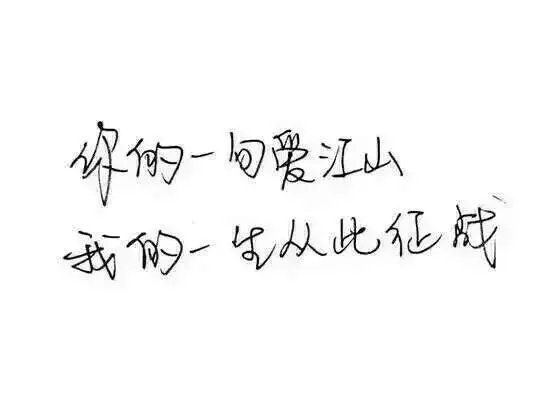 你的一句爱江山
我的一生从此征战